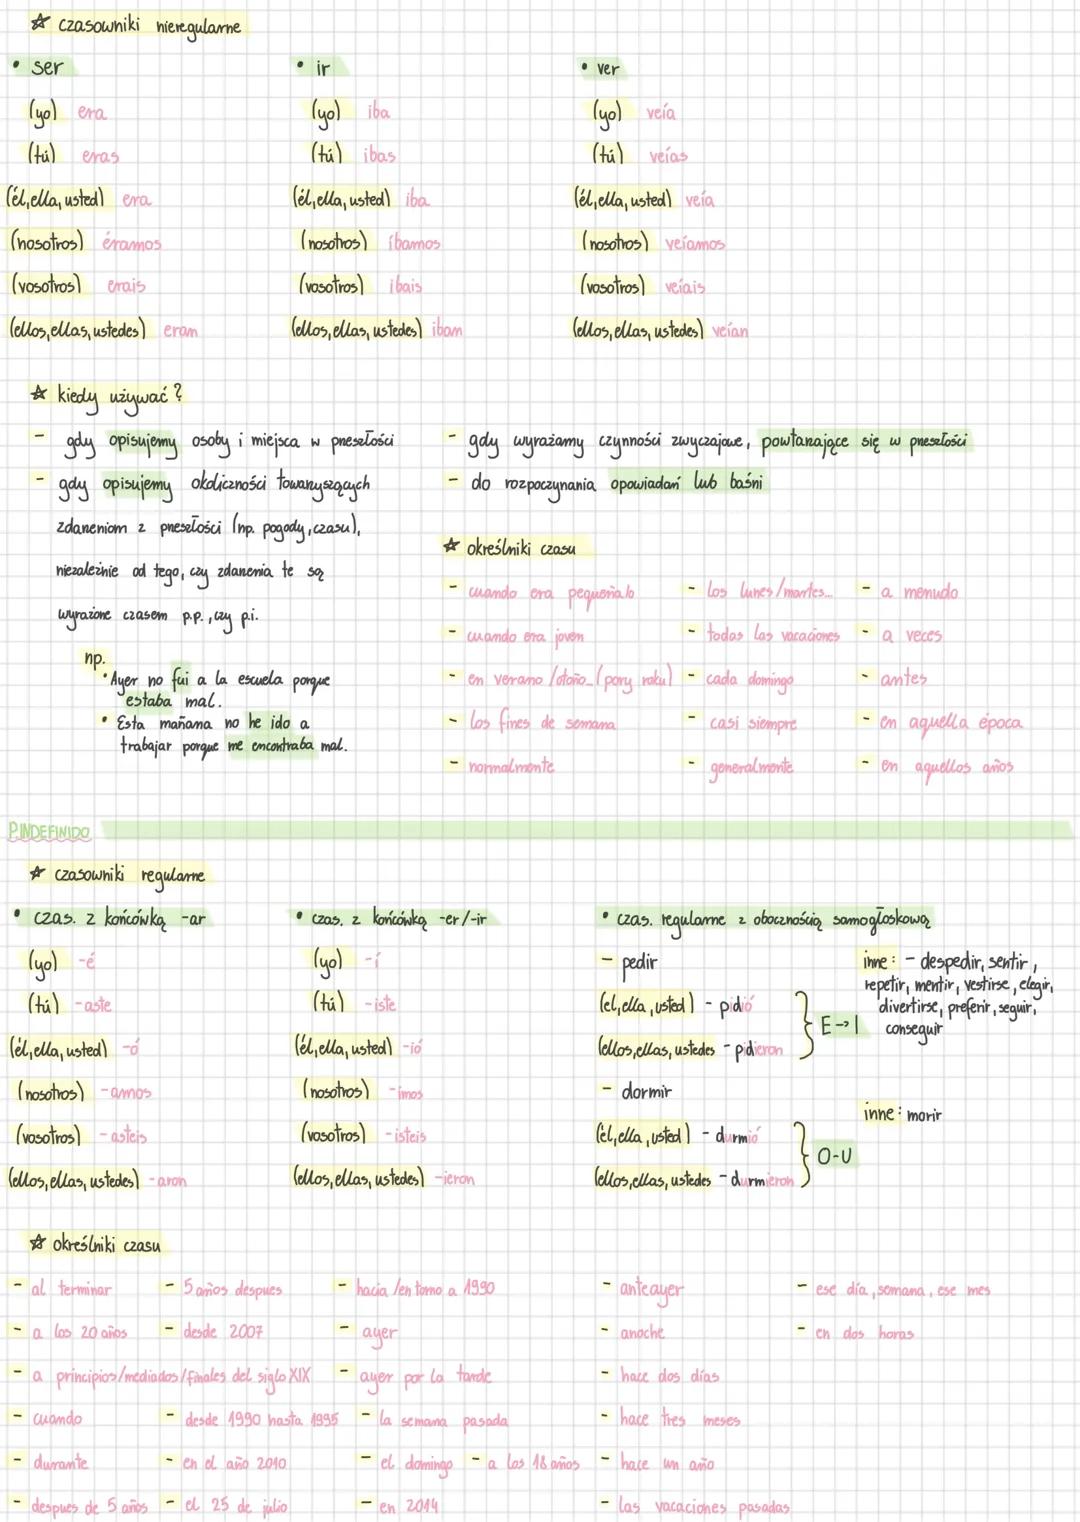 ☆ czasowniki nieregularne
• ser
(yo) era
(tú) eras
(él, ella, usted) era
(nosotros) éramos
(vosotros) erais
(ellos, ellas, ustedes) eran
• ir
(yo) iba
(tú) ibas
(él, ella, usted) iba
(nosotros) íbamos
(vosotros) ibais
(ellos, ellas, ustedes) iban
• ver
(yo) veía
(tú) veías
(él, ella, usted) veía
(nosotros) veíamos
(vosotros) veíais
(ellos, ellas, ustedes) veían
☆ kiedy używać?
- gdy opisujemy osoby i miejsca w przeszłości
- gdy opisujemy okoliczności towarzyszących
zdarzeniom z przeszłości (np. pogody, czasu),
niezależnie od tego, czy zdarzenia te są
wyrażone czasem p.p., czy p.i.
np.
• Ayer no fui a la escuela porque
estaba mal.
• Esta mañana no he ido a
trabajar porque me encontraba mal.
- gdy wyrażamy czynności zwyczajowe, powtarzające się w przeszłości
- do rozpoczynania opowiadań lub baśni
☆ określniki czasu
- cuando era pequeña/o
- cuando era joven
- en verano/otoño... (pory roku)
- los fines de semana
- normalmente
- los lunes/martes...
- todas las vacaciones
- cada domingo
- casi siempre
- generalmente
- a menudo
- a veces
- antes
- en aquella época
- en aquellos años
P.INDEFINIDO
☆ czasowniki regularne
• czas. z końcówką -ar
(yo) -é
(tú) -aste
(él, ella, usted) -ó
(nosotros) -amos
(vosotros) -asteis
(ellos, ellas, ustedes) -aron
• czas. z końcówką -er/-ir
(yo) -í
(tú) -iste
(él, ella, usted) -ió
(nosotros) -imos
(vosotros) -isteis
(ellos, ellas, ustedes) -ieron
• czas. regularne z obocznością samogłoskową
- pedir
(el, ella, usted) - pidió
(ellos, ellas, ustedes - pidieron
E -> I
inne: - despedir, sentir,
repetir, mentir, vestirse, elegir,
divertirse, preferir, seguir,
conseguir
- dormir
(él, ella, usted) - durmió
(ellos, ellas, ustedes - durmieron
O-U
inne: morir
☆ określniki czasu
- al terminar
- 5 años despues
- hacia/en torno a 1990
- anteayer
- ese día, semana, ese mes
- a los 20 años
- desde 2007
- ayer
- anoche
- en dos horas
- a principios/mediados/finales del siglo XIX
- ayer por la tarde
- hace dos días
- cuando
- desde 1990 hasta 1995
- la semana pasada
- hace tres meses
- durante
- en el año 2010
- el domingo
- a los 18 años
- hace un año
- despues de 5 años
- el 25 de julio
- en 2014
- las vacaciones pasadas